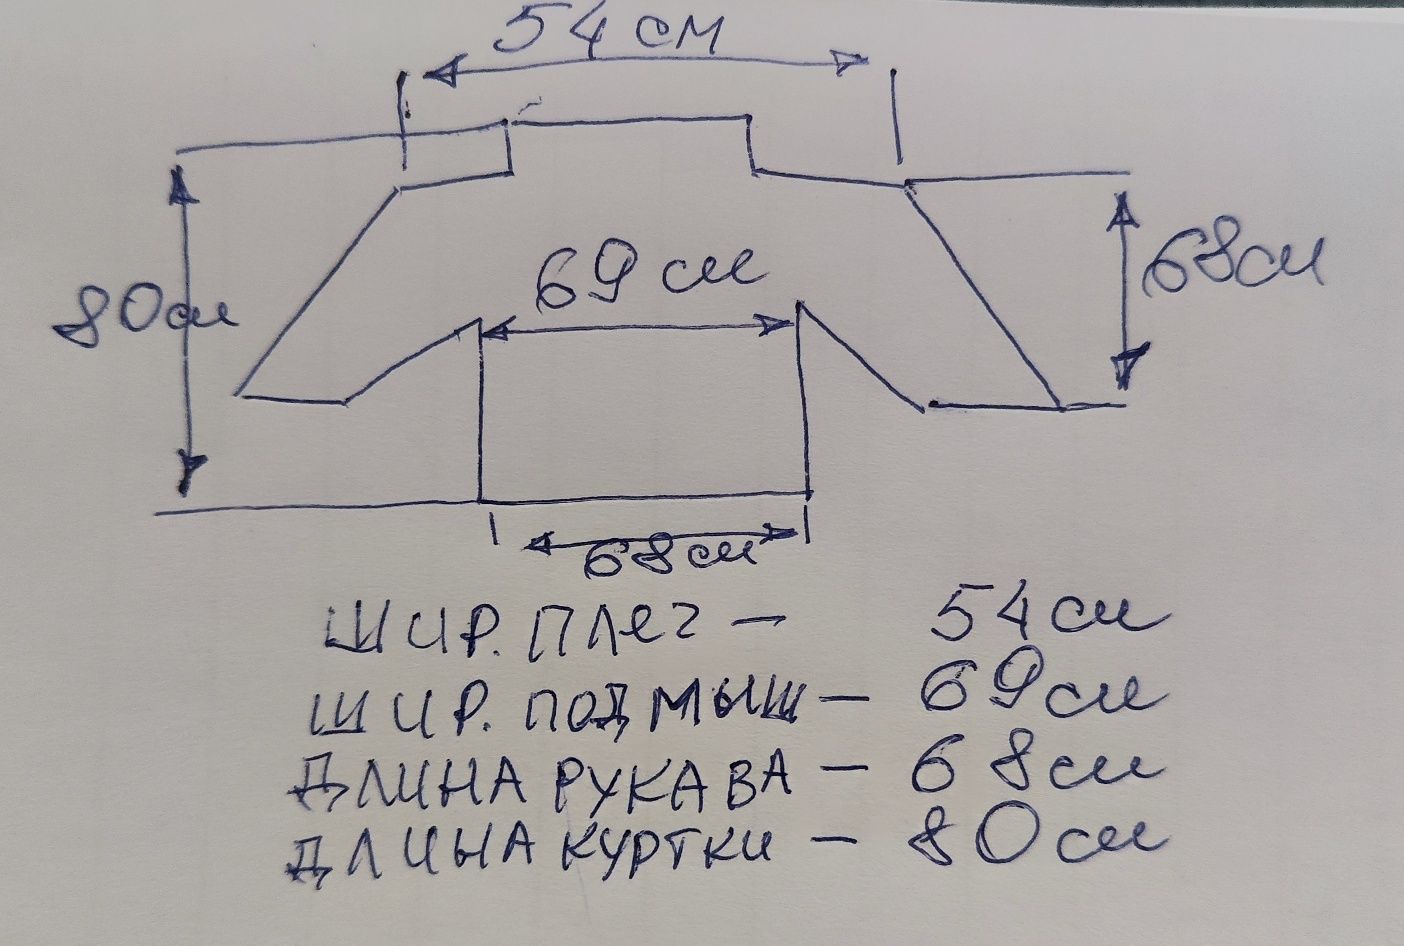 54 см
69 см
80см
68см
68см
ШИР. ПЛЕЧ — 54см
ШИР. ПОДМЫШ — 69см
ДЛИНА РУКАВА — 68см
ДЛИНА КУРТКИ — 80см